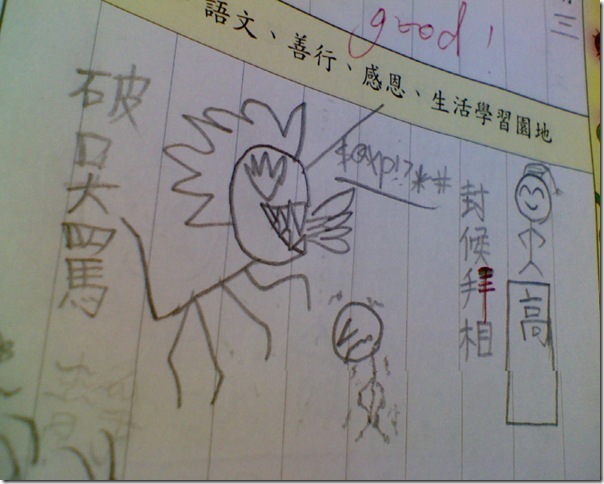 三
good!
語文、善行、感恩、生活學習園地
高
封候拜相
破口大罵